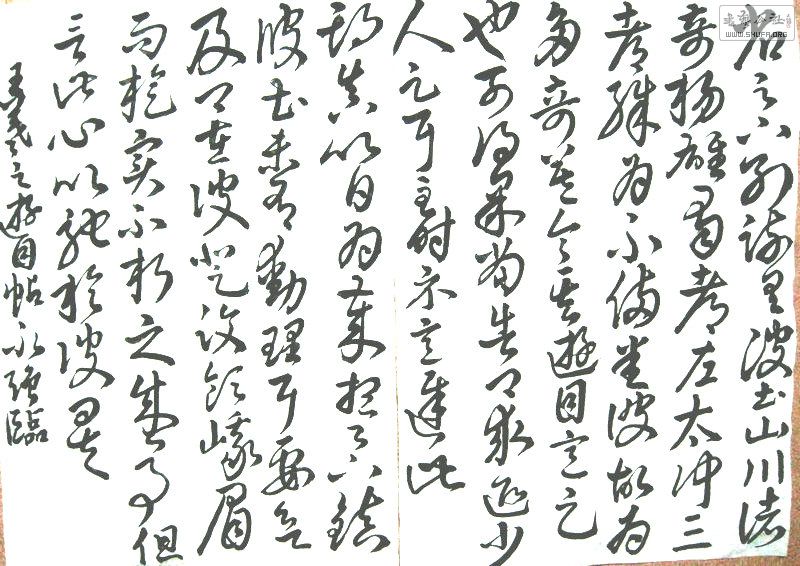 省足下別疏具彼土山川諸
奇楊雄蜀都左太沖三
都殊為不備悉彼故為
多奇益令其遊目意足
也可得果當告卿求迎少
人足耳至時示意遲此
期真以日為歲想足下鎮
彼土未有動理耳要欲
及卿在彼登汶領峨眉
而旋實不朽之盛事但
言此心以馳於彼矣
王羲之遊目帖 永強臨
書法公社
WWW.SHUFA.ORG